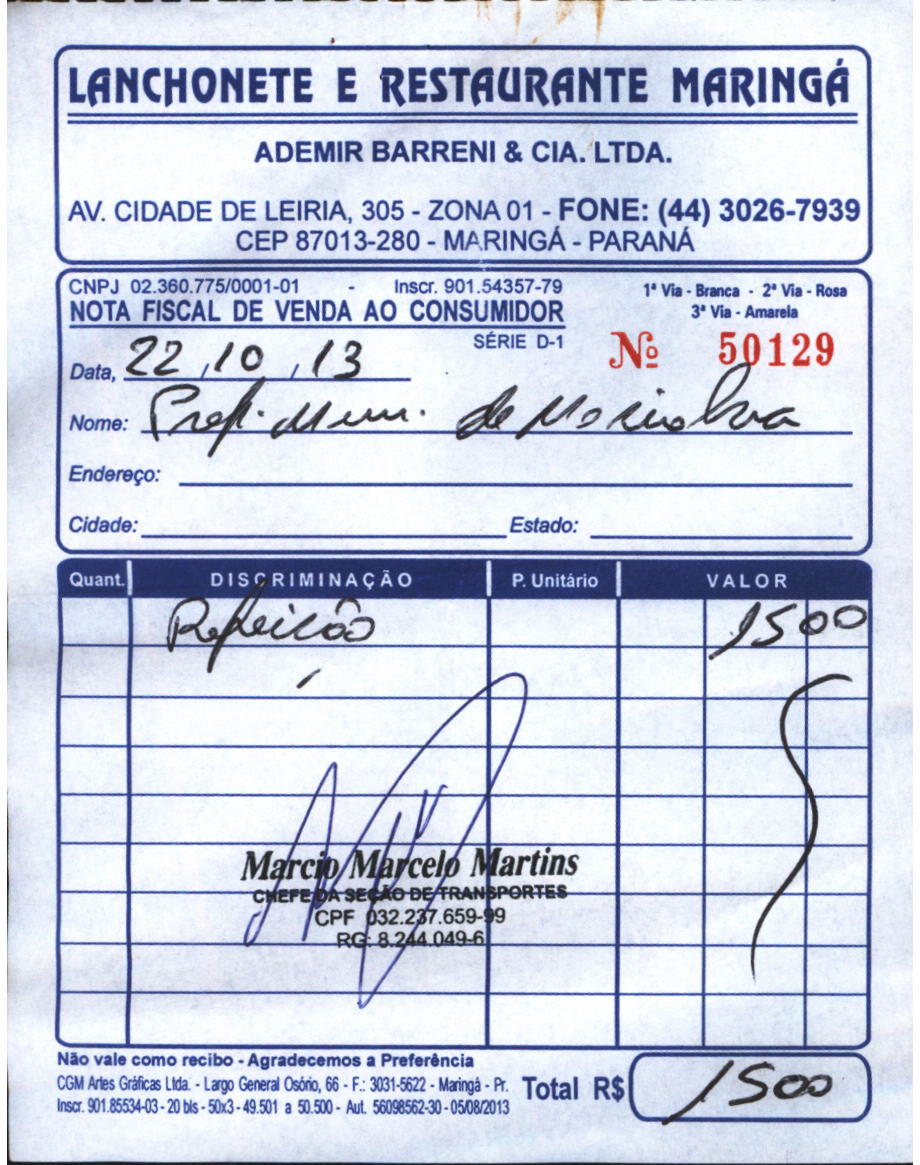 LANCHONETE E RESTAURANTE MARINGÁ
ADEMIR BARRENI & CIA. LTDA.
AV. CIDADE DE LEIRIA, 305 - ZONA 01 - FONE: (44) 3026-7939
CEP 87013-280 - MARINGÁ - PARANÁ
CNPJ 02.360.775/0001-01 - Inscr. 901.54357-79
1ª Via - Branca - 2ª Via - Rosa
3ª Via - Amarela
NOTA FISCAL DE VENDA AO CONSUMIDOR
SÉRIE D-1
Nº 50129
Data, 22, 10, 13
Nome: Pref. Mun. de
Endereço:
Cidade: Estado:
Quant. DISCRIMINAÇÃO P. Unitário VALOR
Refeição 1500
Marcio Marcelo Martins
CHEFE DA SEÇÃO DE TRANSPORTES
CPF 032.237.659-99
RG: 8.244.049-6
Não vale como recibo - Agradecemos a Preferência
CGM Artes Gráficas Ltda. - Largo General Osório, 66 - F.: 3031-5622 - Maringá - Pr.
Inscr. 901.85534-03 - 20 bls - 50x3 - 49.501 a 50.500 - Aut. 56098562-30 - 05/08/2013
Total R$ 1500